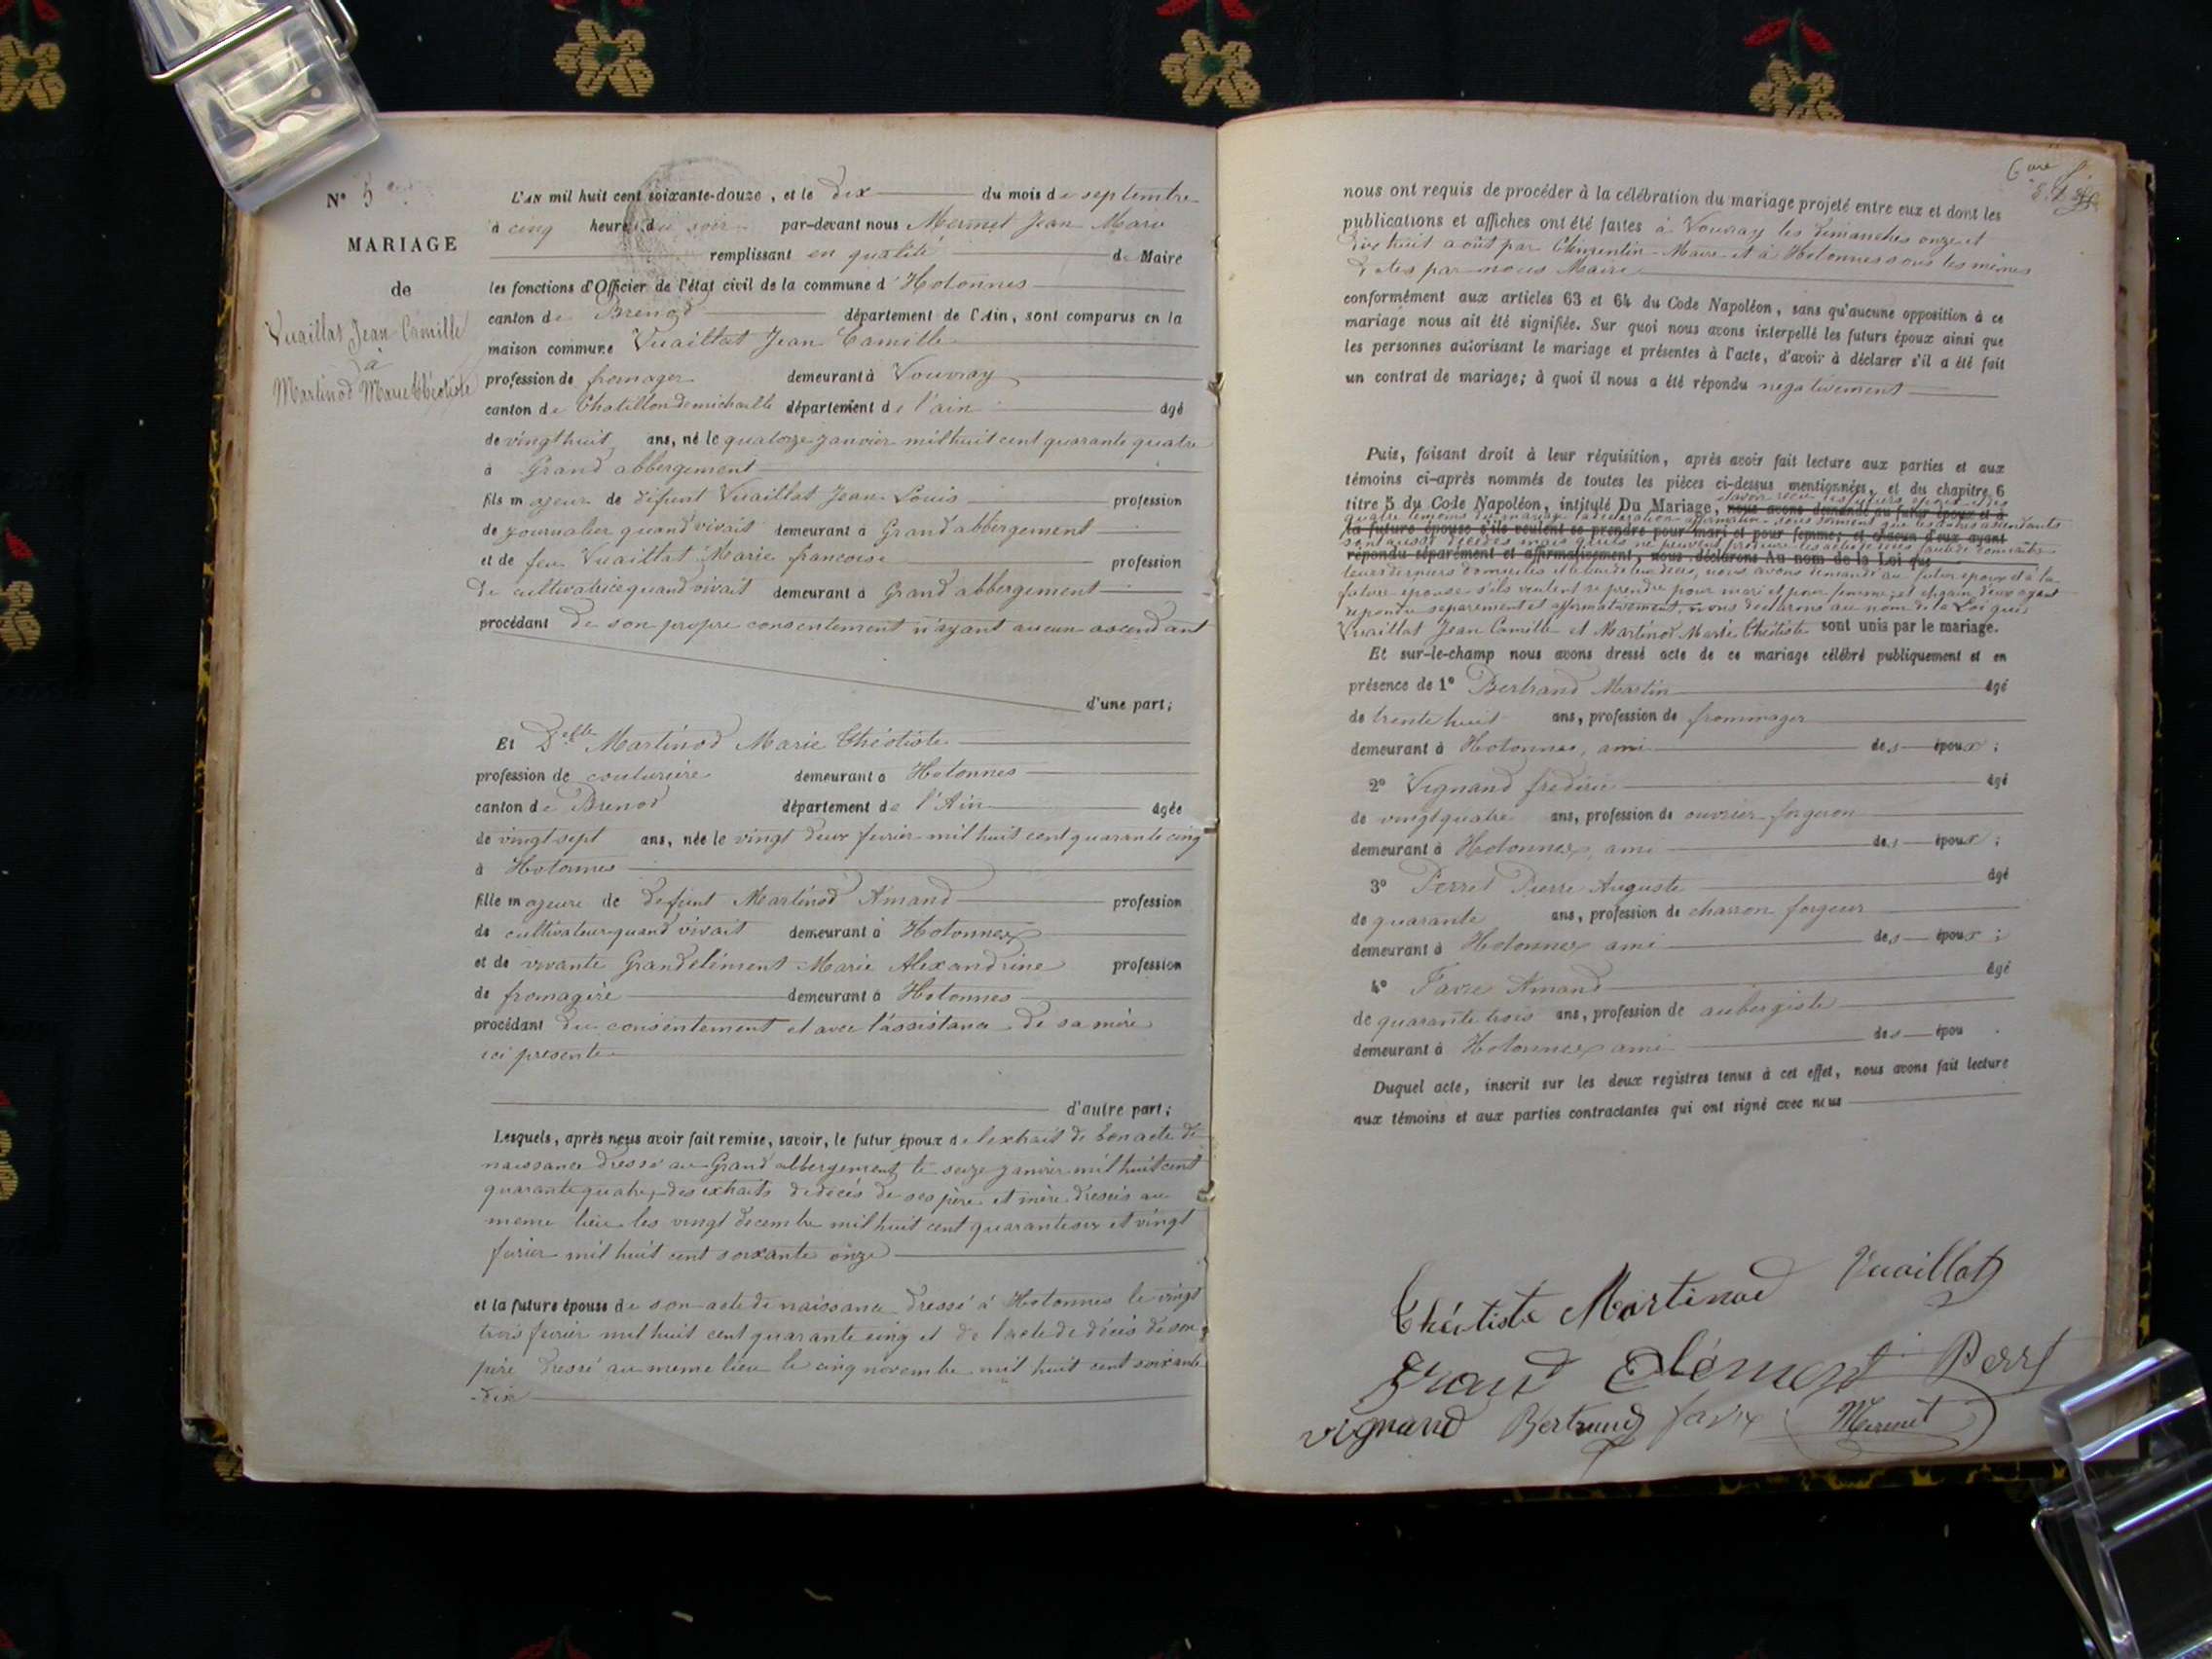 N° 5
MARIAGE
de
Vuaillat Jean Camille
à
Martinod Marie Théotiste
L'AN mil huit cent soixante-douze, et le dix du mois de septembre
à cinq heures du soir par-devant nous Mermet Jean Marie
remplissant en qualité de Maire
les fonctions d'Officier de l'état civil de la commune d'Hotonnes
canton de Brenod département de l'Ain, sont comparus en la
maison commune Vuaillat Jean Camille
profession de fromager demeurant à Vouvray
canton de Chatillondemichaille département de l'ain âgé
de vingt huit ans, né le quatorze janvier mil huit cent quarante quatre
à Grand abbergement
fils majeur de défunt Vuaillat Jean Louis profession
de journalier quand vivait demeurant à Grand abbergement
et de feu Vuaillat Marie francoise profession
de cultivatrice quand vivait demeurant à Grand abbergement
procédant de son propre consentement n'ayant aucun ascendant
d'une part;
Et Delle Martinod Marie Théotiste
profession de couturière demeurant à Hotonnes
canton de Brenod département de l'Ain âgée
de vingt sept ans, née le vingt deux fevrier mil huit cent quarante cinq
à Hotonnes
fille majeure de défunt Martinod Amand profession
de cultivateur quand vivait demeurant à Hotonnes
et de vivante Grandclément Marie Alexandrine profession
de fromagère demeurant à Hotonnes
procédant du consentement et avec l'assistance de sa mère
ici presente
d'autre part;
Lesquels, après nous avoir fait remise, savoir, le futur époux de l'extrait de son acte de
naissance dressé au Grand abbergement le seize janvier mil huit cent
quarante quatre, des extraits de décès de ses père et mère dressés au
meme lieu les vingt decembre mil huit cent quarante six et vingt
fevrier mil huit cent soixante onze
et la future épouse de son acte de naissance dressé à Hotonnes le vingt
trois fevrier mil huit cent quarante cinq et de l'acte de décès de son
père dressé au meme lieu le cinq novembre mil huit cent soixante
dix
nous ont requis de procéder à la célébration du mariage projeté entre eux et dont les
publications et affiches ont été faites à Vouvray les dimanches onze et
dix huit août par Clementin Maire et à Hotonnes sous les mêmes
dates par nous Maire
conformément aux articles 63 et 64 du Code Napoléon, sans qu'aucune opposition à ce
mariage nous ait été signifiée. Sur quoi nous avons interpellé les futurs époux ainsi que
les personnes autorisant le mariage et présentes à l'acte, d'avoir à déclarer s'il a été fait
un contrat de mariage; à quoi il nous a été répondu negativement
Puis, faisant droit à leur réquisition, après avoir fait lecture aux parties et aux
témoins ci-après nommés de toutes les pièces ci-dessus mentionnées, et du chapitre 6
titre 5 du Code Napoléon, intitulé Du Mariage, nous avons demandé au futur époux et à
la future épouse s'ils veulent se prendre pour mari et pour femme; et chacun d'eux ayant
répondu séparément et affirmativement, nous déclarons Au nom de la Loi que
leurs derniers domiciles et le lieu de leur décès, nous avons demandé au futur époux et à la
future epouse s'ils veulent se prendre pour mari et pour femme; et chacun d'eux ayant
repondu separement et affirmativement, nous declarons au nom de la Loi que
Vuaillat Jean Camille et Martinod Marie Théotiste sont unis par le mariage.
Et sur-le-champ nous avons dressé acte de ce mariage célébré publiquement et en
présence de 1° Bertrand Martin âgé
de trente huit ans, profession de frommager
demeurant à Hotonnes, ami des époux;
2° Vignand frederic âgé
de vingt quatre ans, profession de ouvrier forgeron
demeurant à Hotonnes, ami des époux;
3° Perret Pierre Auguste âgé
de quarante ans, profession de charron forgeur
demeurant à Hotonnes ami des époux;
4° Favre Amand âgé
de quarante trois ans, profession de aubergiste
demeurant à Hotonnes ami des épou
Duquel acte, inscrit sur les deux registres tenus à cet effet, nous avons fait lecture
aux témoins et aux parties contractantes qui ont signé avec nous
Théotiste Martinod Vuaillat
Grand Clément Perret
Vignand Bertrand favre Mermet